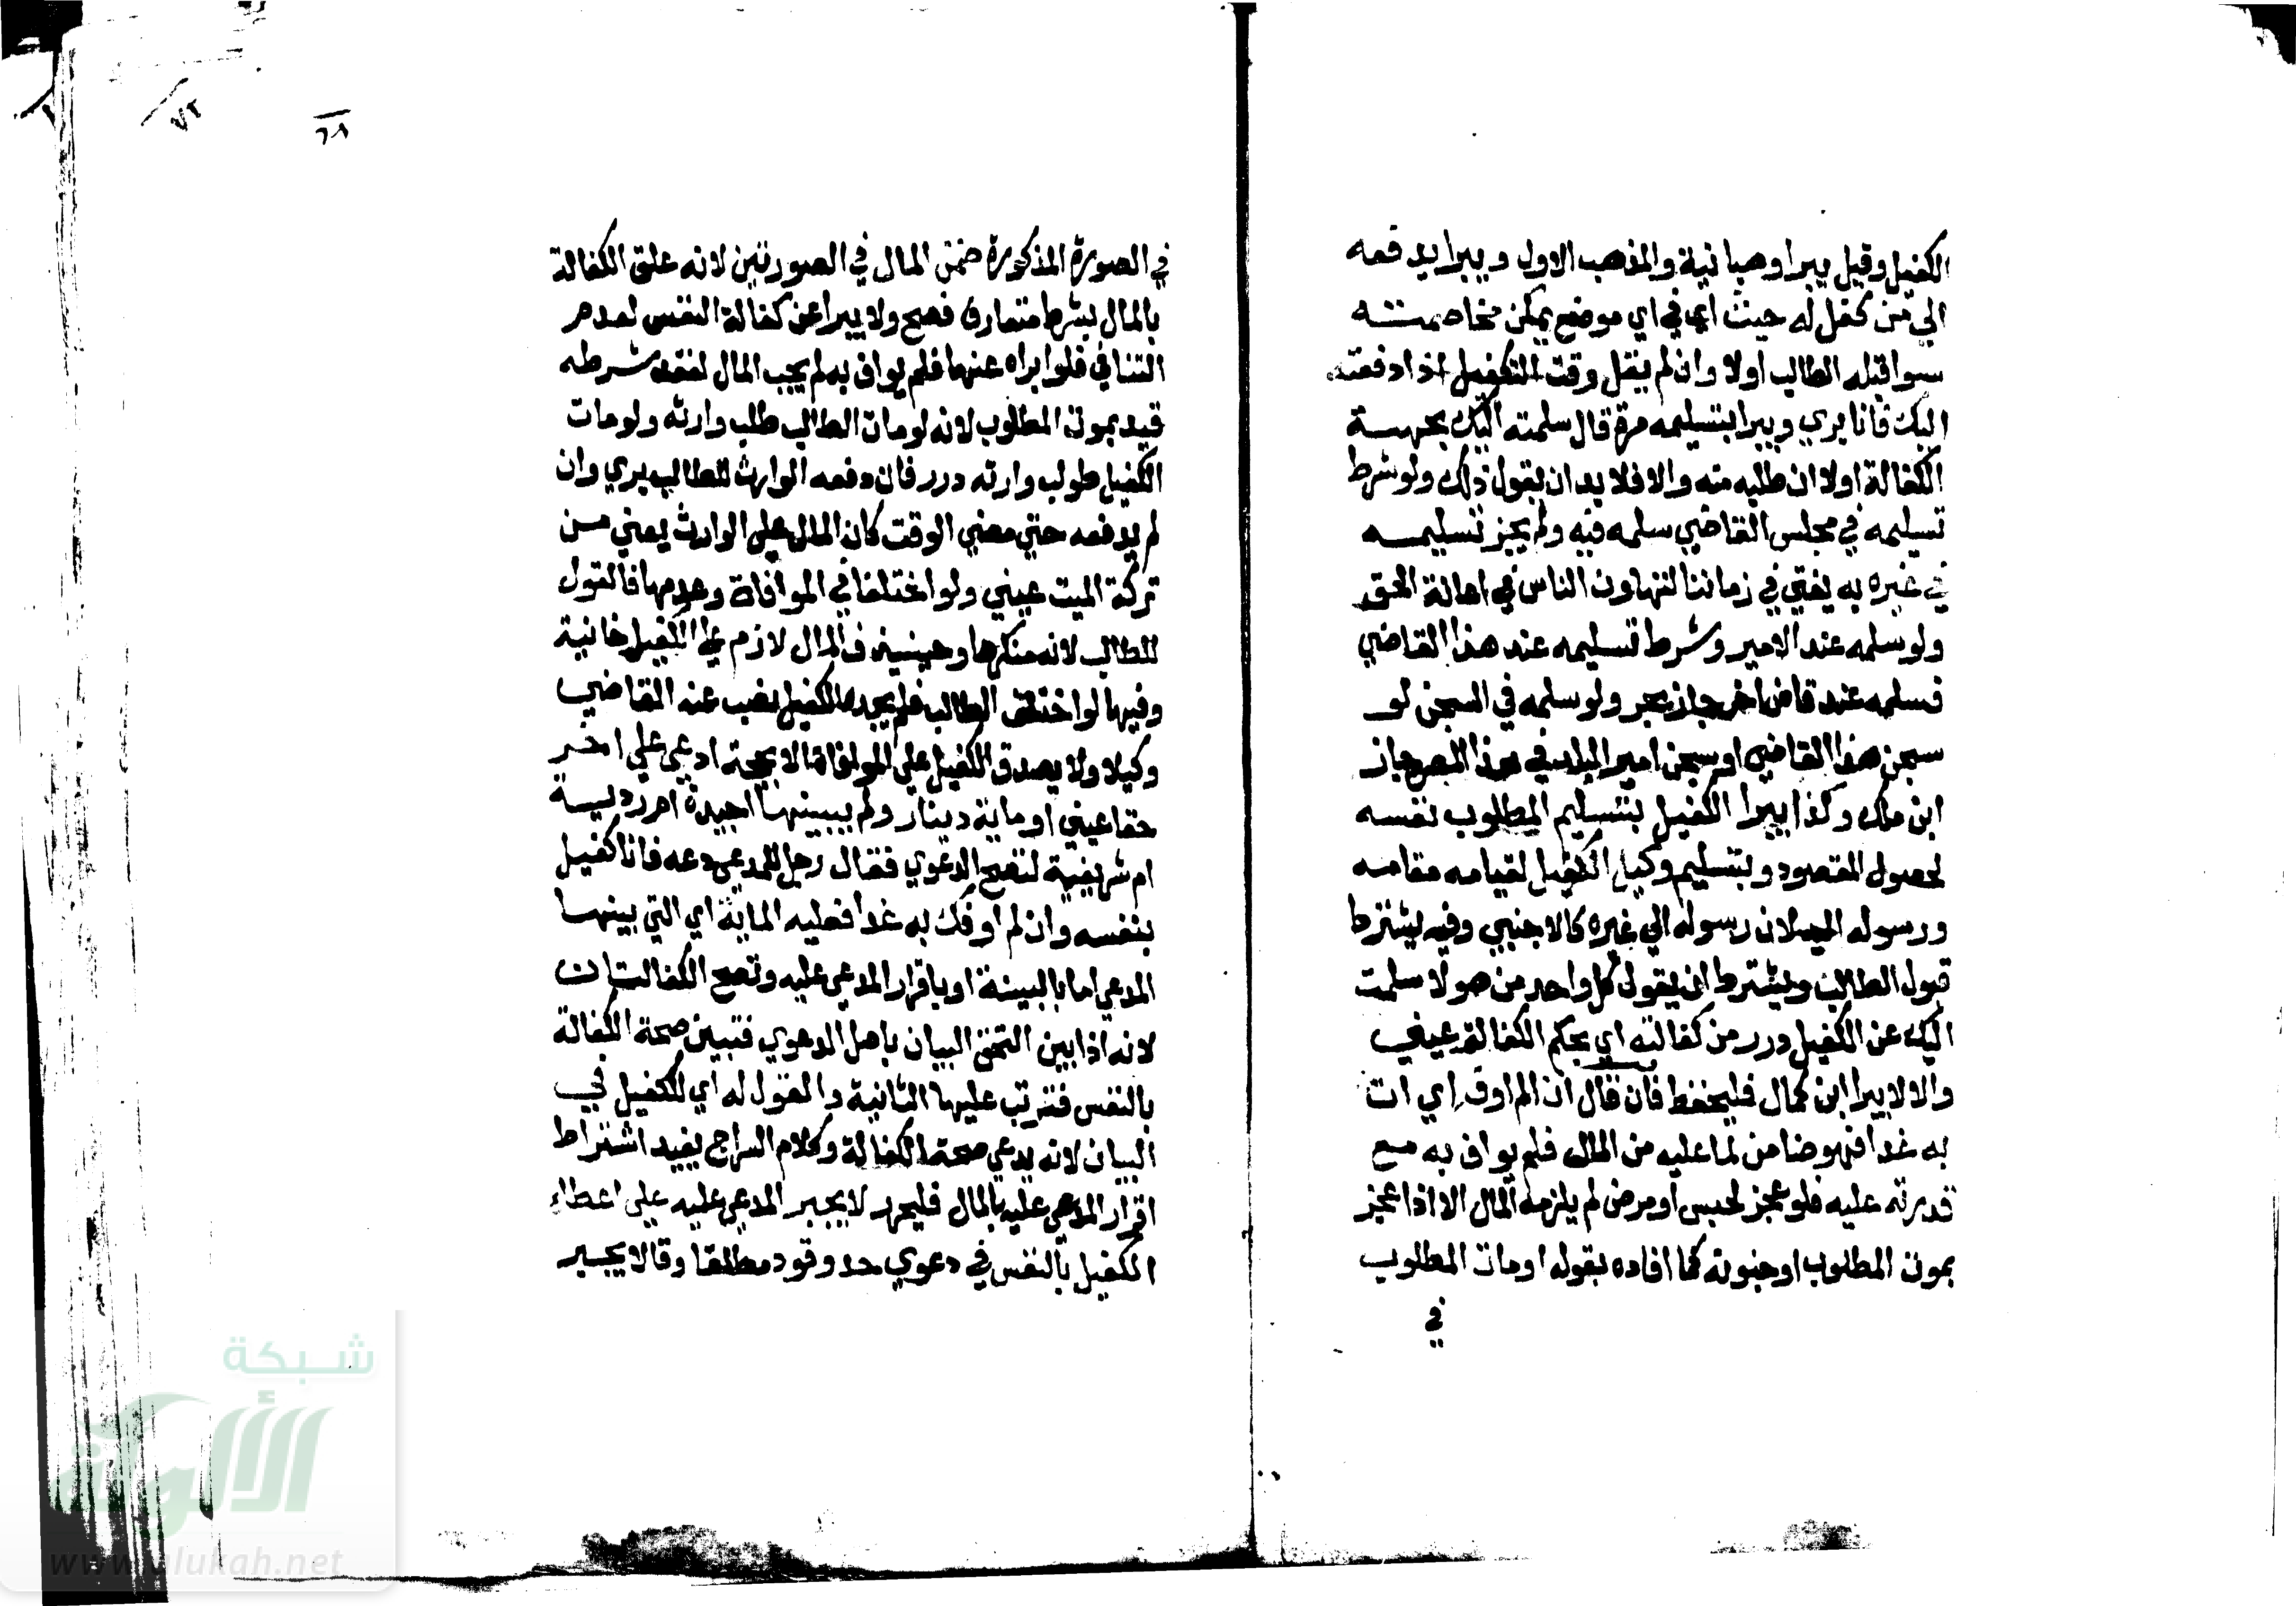 الكفيل وقيل يبرا وهبانية والمذهب الاول ويبرا بدفعه
الي من كفل له حيث اي في اي موضع يمكن مخاصمته
سوا قبله الطالب اولا وان لم يقل وقت التكفيل اذا دفعته
اليك فانا بري ويبرا بتسليمه مرة قال سلمته اليك بجهة
الكفالة اولا ان طلبه منه والا فلا بد ان يقول ذلك ولو شرط
تسليمه في مجلس القاضي سلمه فيه ولم يجز تسليمه
في غيره به يفتي في زماننا لتهاون الناس في اعانة الحق
ولو سلمه عند الامير وشرط تسليمه عند هذا القاضي
فسلمه عند قاض اخر جاز بحر ولو سلمه في السجن لو
سجن هذا القاضي او سجن امير البلد في هذا المصر جاز
ابن ملك وكذا يبرا الكفيل بتسليم المطلوب نفسه
لحصول المقصود وبتسليم وكيل الكفيل لقيامه مقامه
ورسوله اليه لان رسوله الي غيره كالاجنبي وفيه يشترط
قبول الطالب ويشترط ان يقول كل واحد من هولا سلمت
اليك عن الكفيل درر من كفالته اي بحكم الكفالة عيني
والا لا يبرا ابن كمال فليحفظ فان قال ان لم اوف اي ات
به غدا فهو ضامن لما عليه من المال فلم يواف به مع
قدرته عليه فلو عجز لحبس او مرض لم يلزمه المال الا اذا عجز
بموت المطلوب او جنونه كما افاده بقوله او مات المطلوب
في
٦٨
٧٢
في الصورة المذكورة ضمن المال في الصورتين لانه علق الكفالة
بالمال بشرط متعارف فصح ولا يبرا عن كفالة النفس لعدم
التنافي فلو ابراه عنها فلم يواف به لم يجب المال لفقد شرطه
قيد بموت المطلوب لانه لو مات الطالب طلب وارثه ولو مات
الكفيل طولب وارثه درر فان دفعه الوارث للطالب بري وان
لم يدفعه حتي مضي الوقت كان المال علي الوارث يعني من
تركة الميت عيني ولو اختلفا في الموافاة وعدمها فالقول
للطالب لانه منكرها وحينيذ فالمال لازم علي الكفيل خانية
وفيها لو اختفي الطالب فلم يجده الكفيل نصب عنه القاضي
وكيلا ولا يصدق الكفيل علي الموافاة الا بحجة ادعي علي اخر
حقا عيني او ماية دينار ولم يبينها اجيدة ام ردية
ام شريفية لتصح الدعوي فقال رجل للمدعي دعه فانا كفيل
بنفسه وان لم اوفك به غدا فعليه الماية اي التي بينها
المدعي اما بالبينة او باقرار المدعي عليه وتصح الكفالتان
لانه اذا بين التحق البيان باصل الدعوي فتبين صحة الكفالة
بالنفس فترتب عليها الثانية والقول له اي للكفيل في
البيان لانه يدعي صحة الكفالة وكلام السراج يفيد اشتراط
اقرار المدعي عليه بالمال فليحرر لا يجبر المدعي عليه علي اعطاء
الكفيل بالنفس في دعوي حد وقود مطلقا وقالا يجبر
شبكة
الألوكة
www.alukah.net